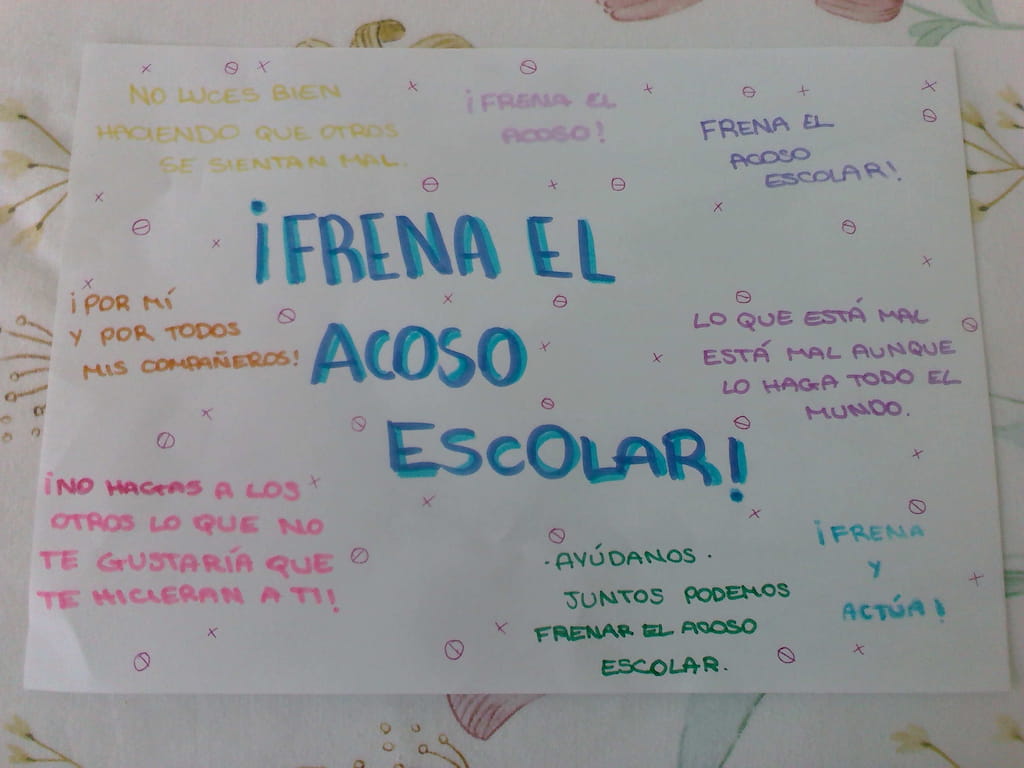 NO LUCES BIEN
HACIENDO QUE OTROS
SE SIENTAN MAL.
¡FRENA EL
ACOSO!
FRENA EL
ACOSO
ESCOLAR!
¡FRENA EL
ACOSO
ESCOLAR!
¡POR MÍ
Y POR TODOS
MIS COMPAÑEROS!
LO QUE ESTÁ MAL
ESTÁ MAL AUNQUE
LO HAGA TODO EL
MUNDO.
¡NO HAGAS A LOS
OTROS LO QUE NO
TE GUSTARÍA QUE
TE HICIERAN A TI!
·AYÚDANOS·
JUNTOS PODEMOS
FRENAR EL ACOSO
ESCOLAR.
¡FRENA
Y
ACTÚA!